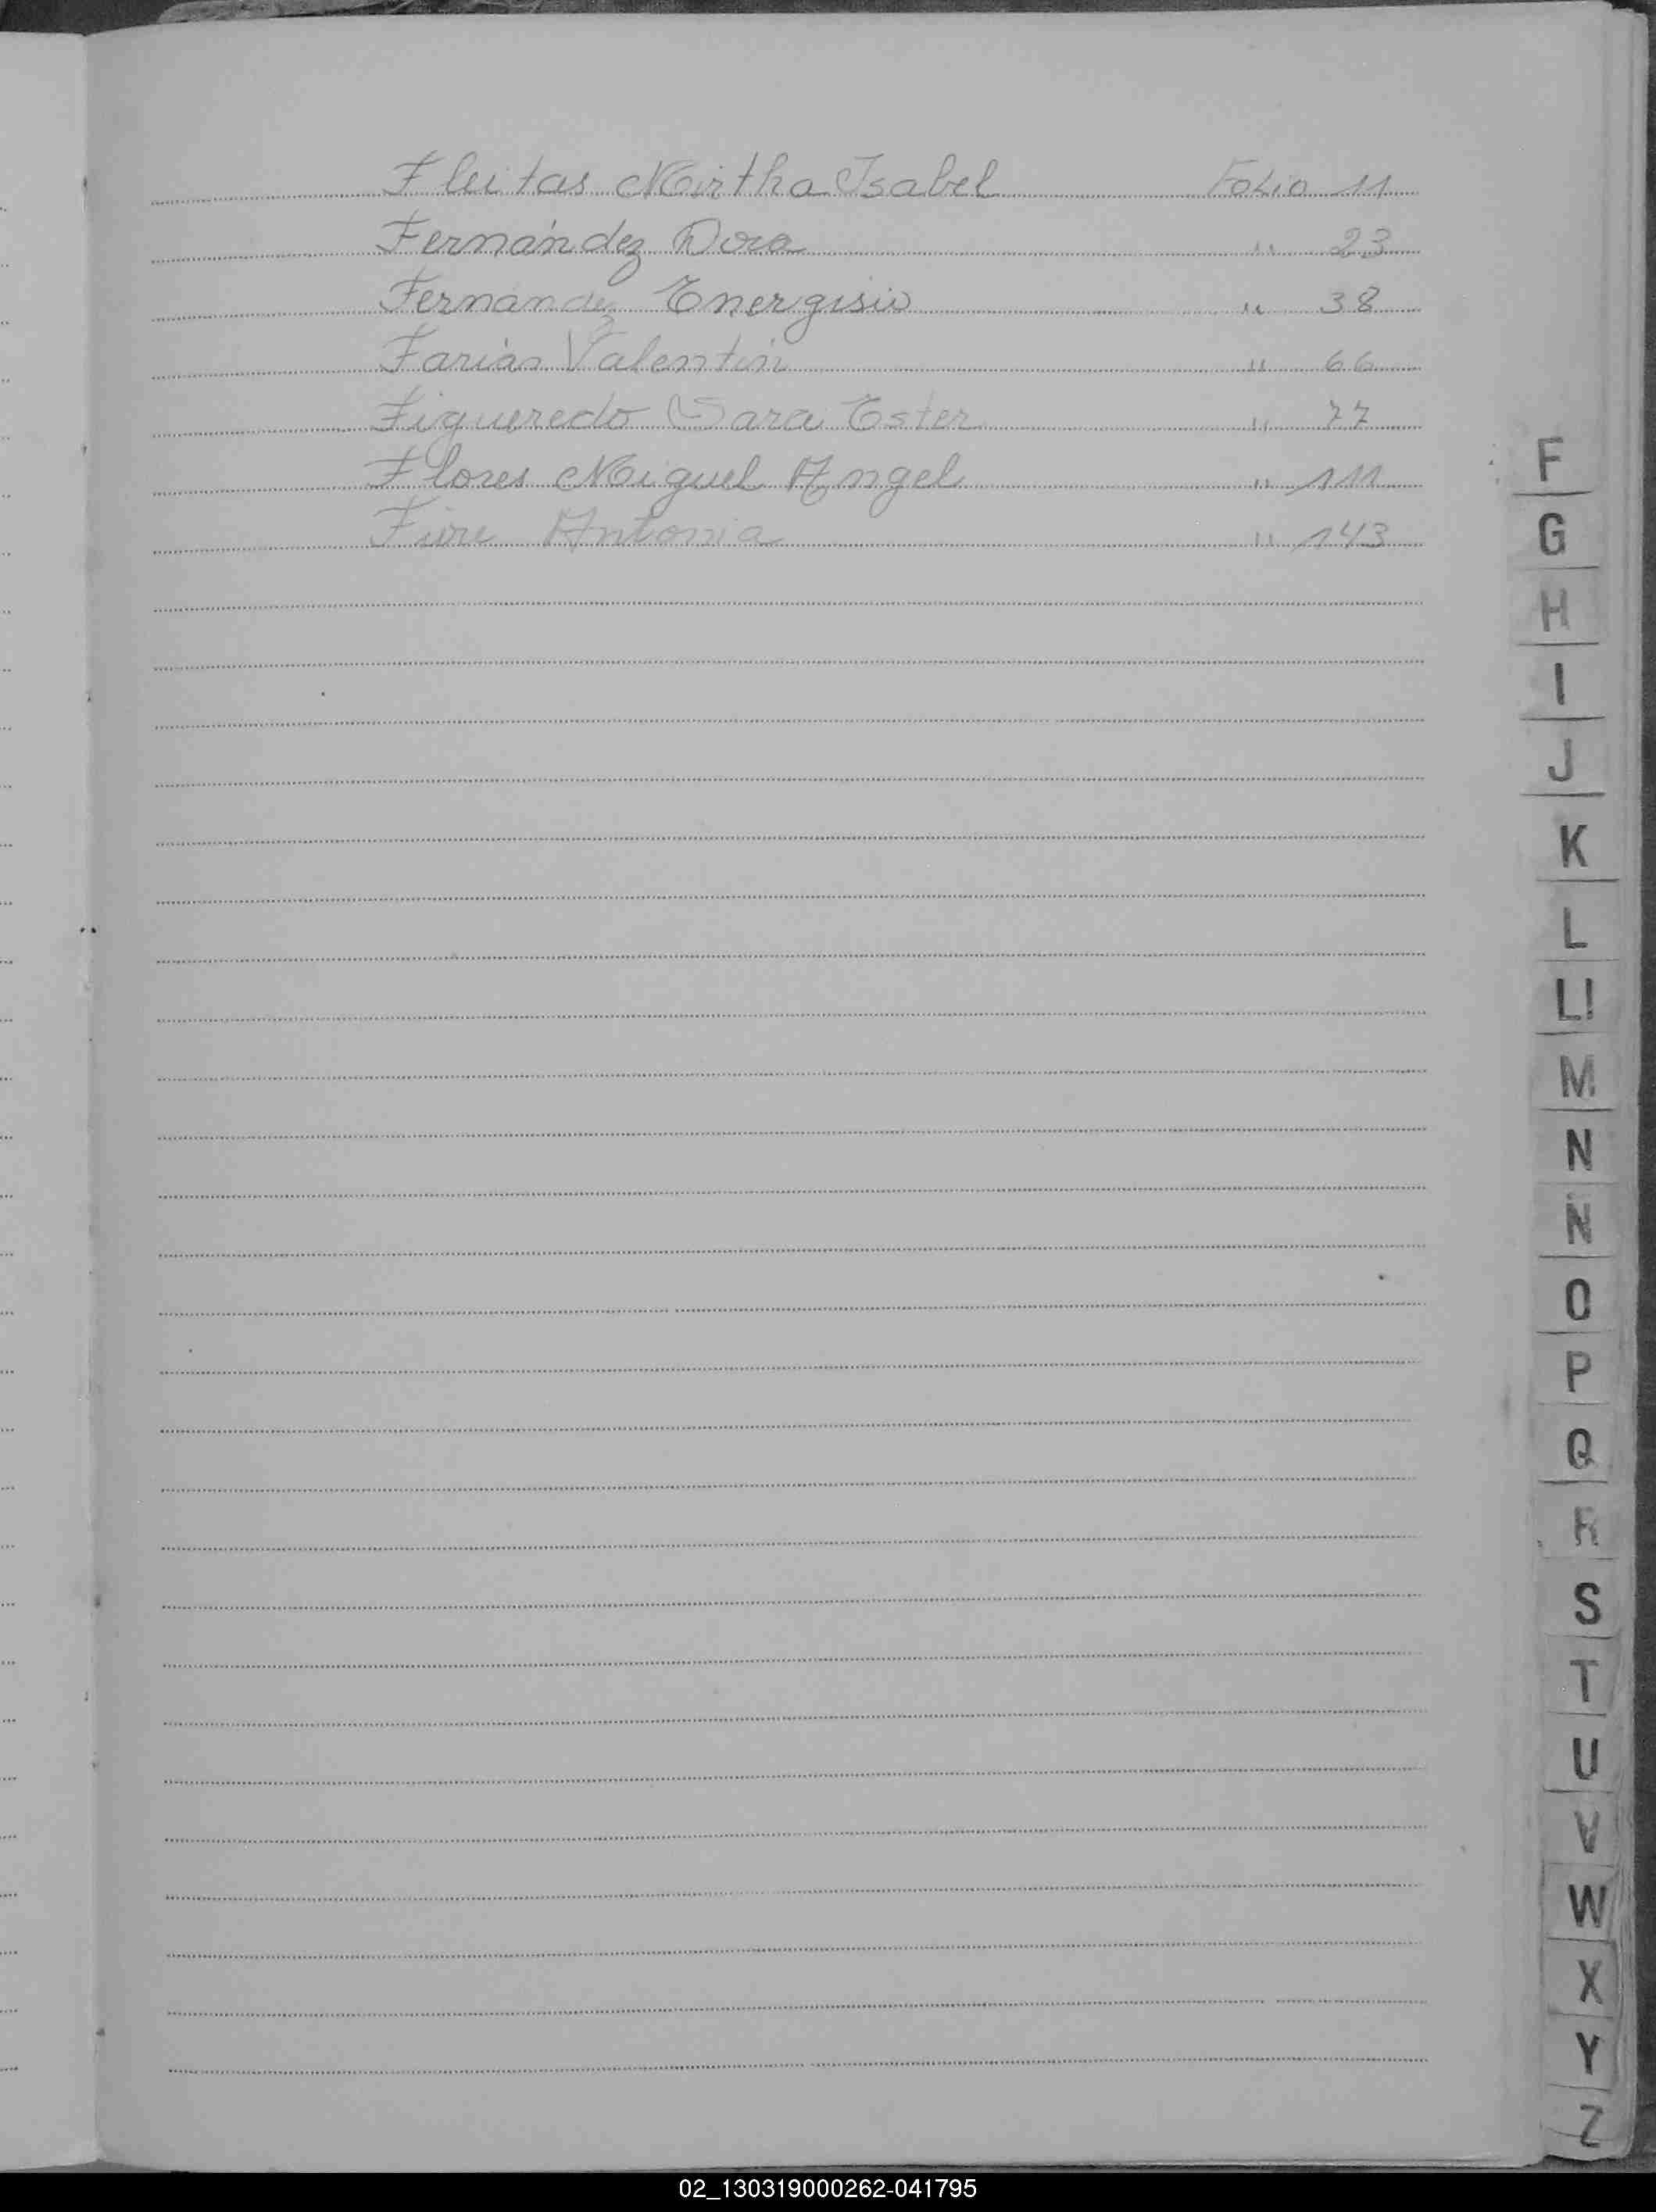 Fleitas Mirtha Isabel Folio 11
Fernández Dora " 23
Fernandez Energisio " 38
Farias Valentin " 66
Figueredo Sara Ester " 77
Flores Miguel Angel " 111
Antonia " 143
F
G
H
I
J
K
L
Ll
M
N
Ñ
O
P
Q
R
S
T
U
V
W
X
Y
Z
02_130319000262-041795